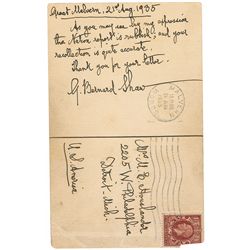 Great Malvern, 21st Aug. 1935
As you may see by my expression
the Action report is rubbish and your
recollection is quite accurate.
Thank you for your letter.
G. Bernard Shaw
MALVERN
Mrs M. E.
2205 W. Philadelphia
Detroit Mich.
U.S. America